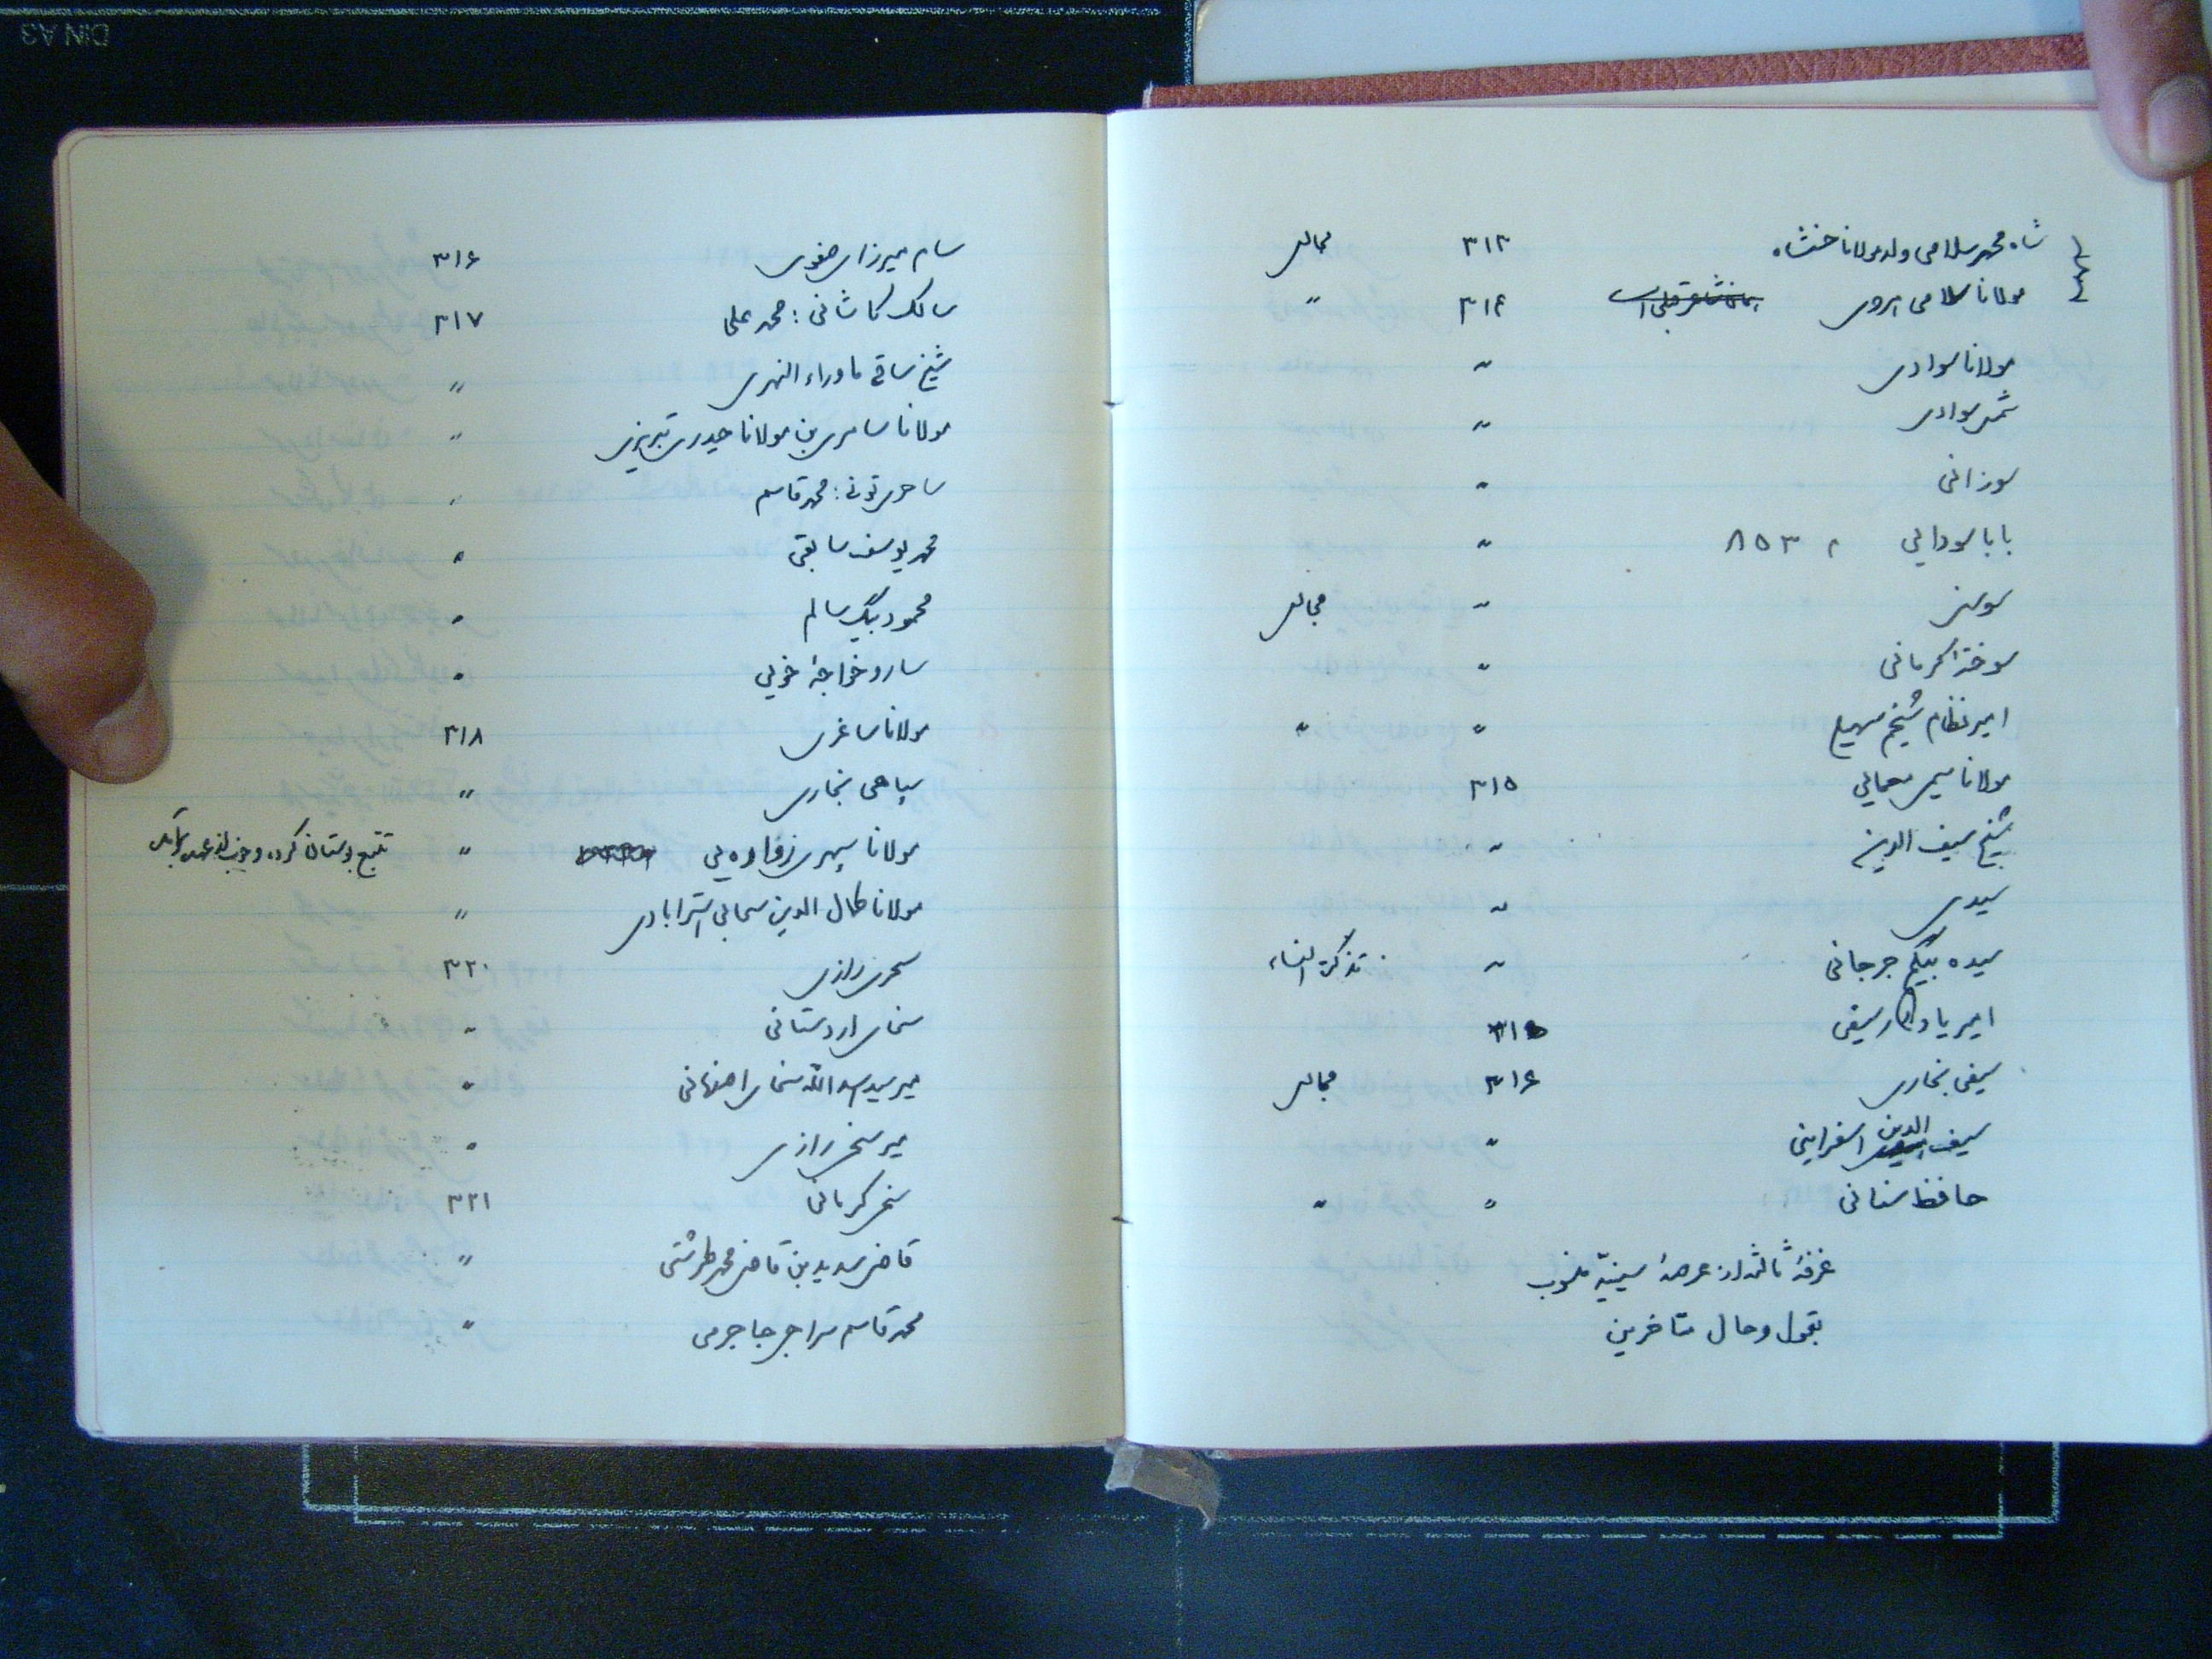 شاه محمد سلامی ولد مولانا خنشاه ۳۱۳ مجالس
مولانا سلامی هروی ۳۱۴ "
مولانا سوادی "
شمس سوادی "
سوزانی "
بابا سودایی م ۸۵۳ "
سوسنی " مجالس
سوختهٔ کرمانی "
امیر نظام شیخم سهیلی " "
مولانا سیر معمایی ۳۱۵
شیخ سیف الدین "
سیدی "
سیده بیگم جرجانی " تذکرة النساء
امیر یادگار سیفی ۳۱۵
سیفی بخاری ۳۱۶ مجالس
سیف الدین اسفراینی "
حافظ سنانی " "
غرفهٔ ثالثه از عرصهٔ سینیه منسوب
بقول و حال متاخرین
سام میرزای صفوی ۳۱۶
سالک کاشانی : محمد علی ۳۱۷
شیخ ساقی ماوراء النهری "
مولانا سامری بن مولانا حیدری تبریزی "
ساحری تونی : محمد قاسم "
محمد یوسف سابقی "
محمود بیگ سالم "
سارو خواجهٔ خویی "
مولانا ساغری ۳۱۸
سپاهی بخاری "
مولانا سپهری زواره یی " تتبع بوستان کرده و خوب از عهده برآمده
مولانا کمال الدین سحابی استرابادی "
سحری رازی ۳۲۰
سخای اردستانی "
میر سید اسدالله سخای اصفهانی "
میر سنجر رازی "
سنجر کرمانی ۳۲۱
قاضی سدید بن قاضی محمد طرشتی "
محمد قاسم سراجی جاجرمی "
DIN A3